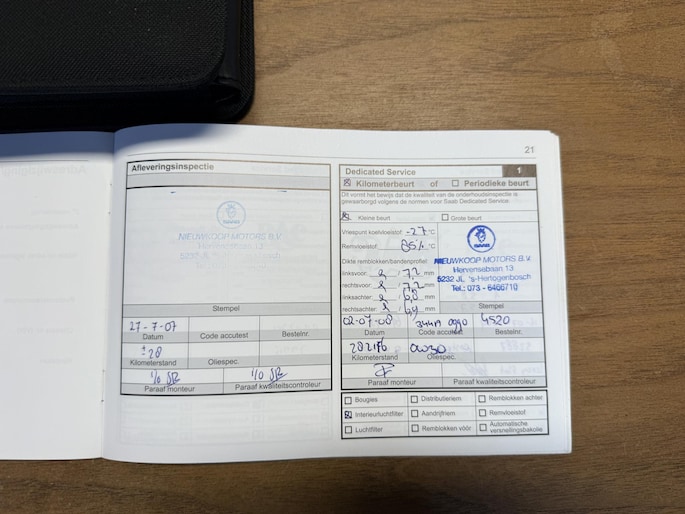 21
Afleveringsinspectie
SAAB
NIEUWKOOP MOTORS B.V.
Hervensebaan 13
Stempel
27-7-07
Datum
Code accutest
Bestelnr.
± 28
Kilometerstand
Oliespec.
Paraaf monteur
Paraaf kwaliteitscontroleur
Dedicated Service
1
Kilometerbeurt of Periodieke beurt
Dit vormt het bewijs dat de kwaliteit van de onderhoudsinspectie is
gewaarborgd volgens de normen voor Saab Dedicated Service.
Kleine beurt
Grote beurt
Vriespunt koelvloeistof: -27 °C
Remvloeistof: °C
Dikte remblokken/bandenprofiel:
linksvoor: / 7,2 mm
rechtsvoor: / 7,2 mm
linksachter: / 6,8 mm
rechtsachter: / 6,9 mm
SAAB
NIEUWKOOP MOTORS B.V.
Hervensebaan 13
5232 JL 's-Hertogenbosch
Tel.: 073 - 6466710
Stempel
02-07-08
4520
Datum
Code accutest
Bestelnr.
28216
0W30
Kilometerstand
Oliespec.
Paraaf monteur
Paraaf kwaliteitscontroleur
Bougies
Distributieriem
Remblokken achter
Interieurluchtfilter
Aandrijfriem
Remvloeistof
Luchtfilter
Remblokken vóór
Automatische
versnellingsbakolie